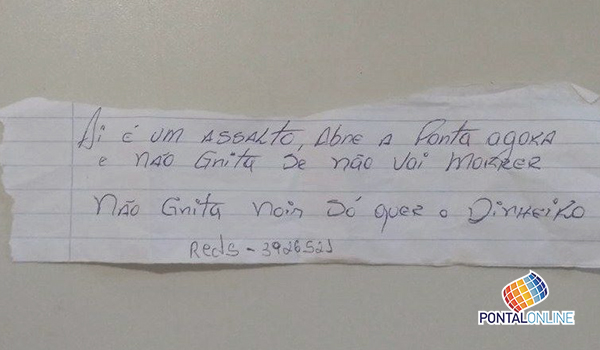 Ai É UM ASSALTO, Abre A Porta agora
e NÃO Grita Se não vai MORRER
NÃO Grita Nois Só quer o DINHEIRO
Reds - 3926521
PONTALONLINE